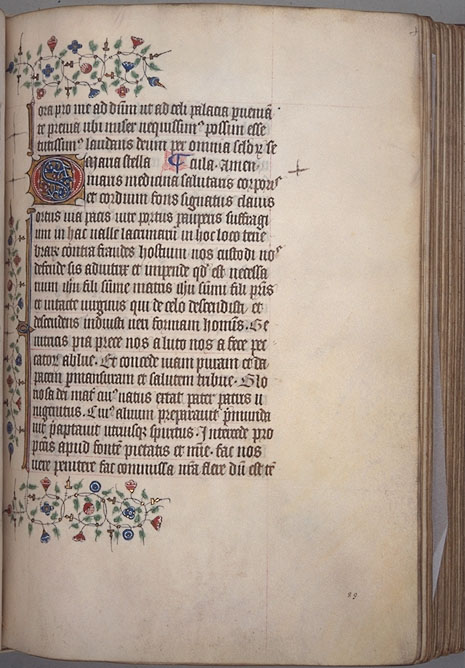 ora pro me ad dūm ut ad celi palacia p̄ueniā
te p̄uia ubi miser nequissimꝰ possim esse
tutissimꝰ laudans deum per omnia sc̄loꝝ se
maria stella cula. Amen
maris medicina salutaris corporꝭ
et cordium fons signatus clauis
ortus uia pacis uite portus pauperis suffragi
um in hac ualle lacrimarū in hoc loco tene
braꝝ contra fraudes hostium nos custodi noˢ
defende sis adiutrix et impende qd̄ est necessa
rium ihū fili sūme matris ihū sūmi fili pr̄is
et intacte uirginis qui de celo descendisti et
descendens induisti ueri formam hominis. Ge
nitricis pia prece nos a luto nos a fece pec
catoꝝ ablue. Et concede uiam puram et da
pacem p̄mansuram et salutem tribue. Glo
riosa dei mat̄ cuiꝰ natus extat pater patris u
nigenitus. Cuiꝰ aluum preparauit
p̄aptauit utriusqꝫ spiritus. Intercede pro
apud fontē pietatis et mīe. fac nos
uere penitere fac commissa nr̄a flere dū est
89